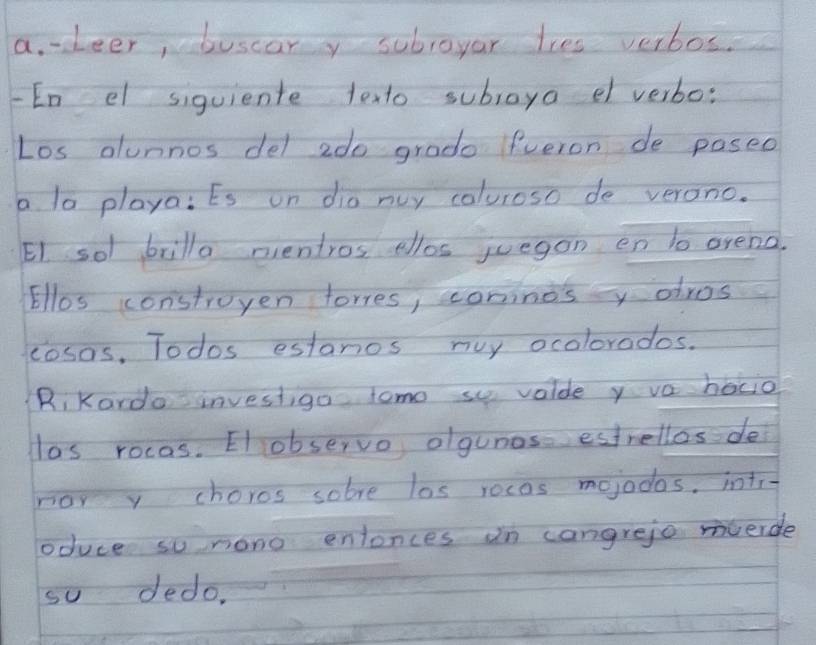 a.-Leer, buscar y subrayar tres verbos.
-En el siguiente texto subraya el verbo:
Los alumnos del 2do grado fueron de paseo
a la playa: Es un dia muy caluroso de verano.
El sol brilla mientras ellos juegan en la arena.
Ellos construyen torres, caminos y otras
cosas. Todos estamos muy acalorados.
Rikardo investiga toma su valde y va hacia
las rocas. El observa algunas estrellas de
mar y choros sobre las rocas mojadas. intr-
oduce su mano entonces un cangrejo muerde
su dedo.